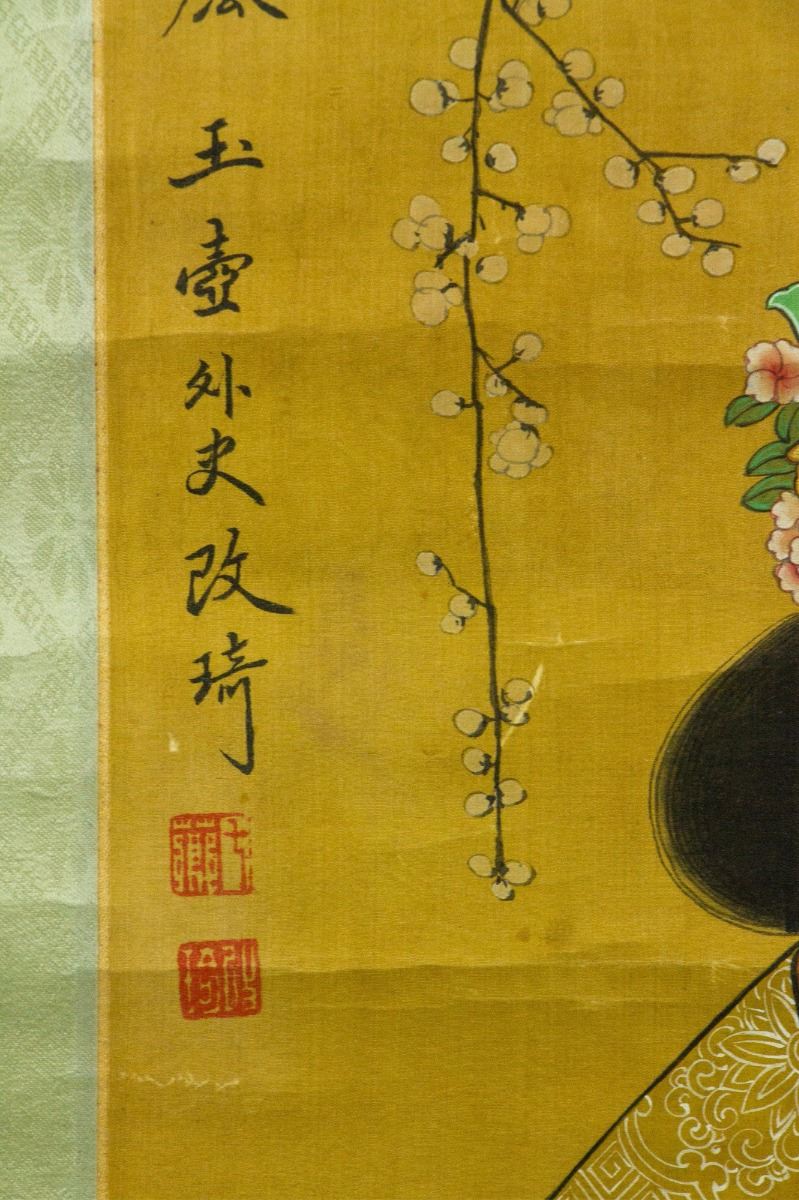 玉壺外史改琦